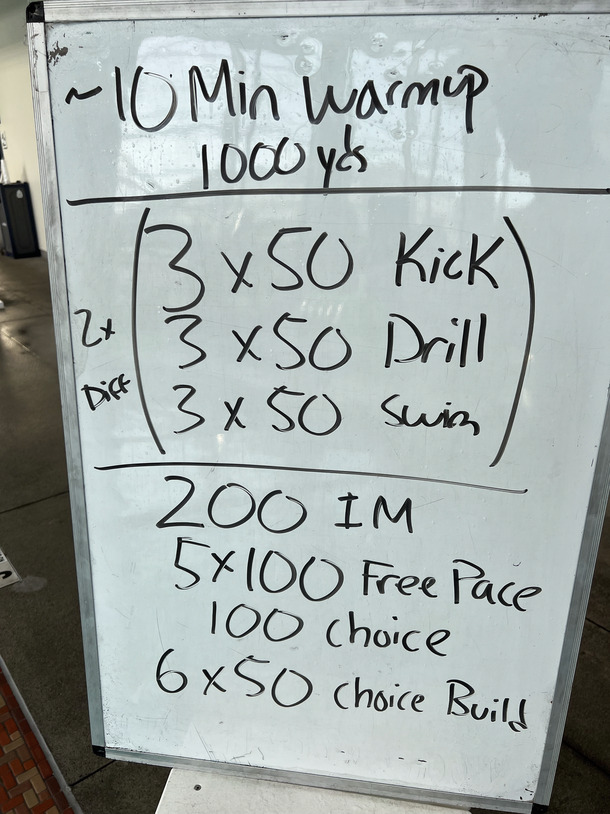 ~10 Min Warmup
1000 yds
3 x 50 Kick
2x
Diff
3 x 50 Drill
3 x 50 Swim
200 IM
5x100 Free Pace
100 choice
6 x 50 choice Build